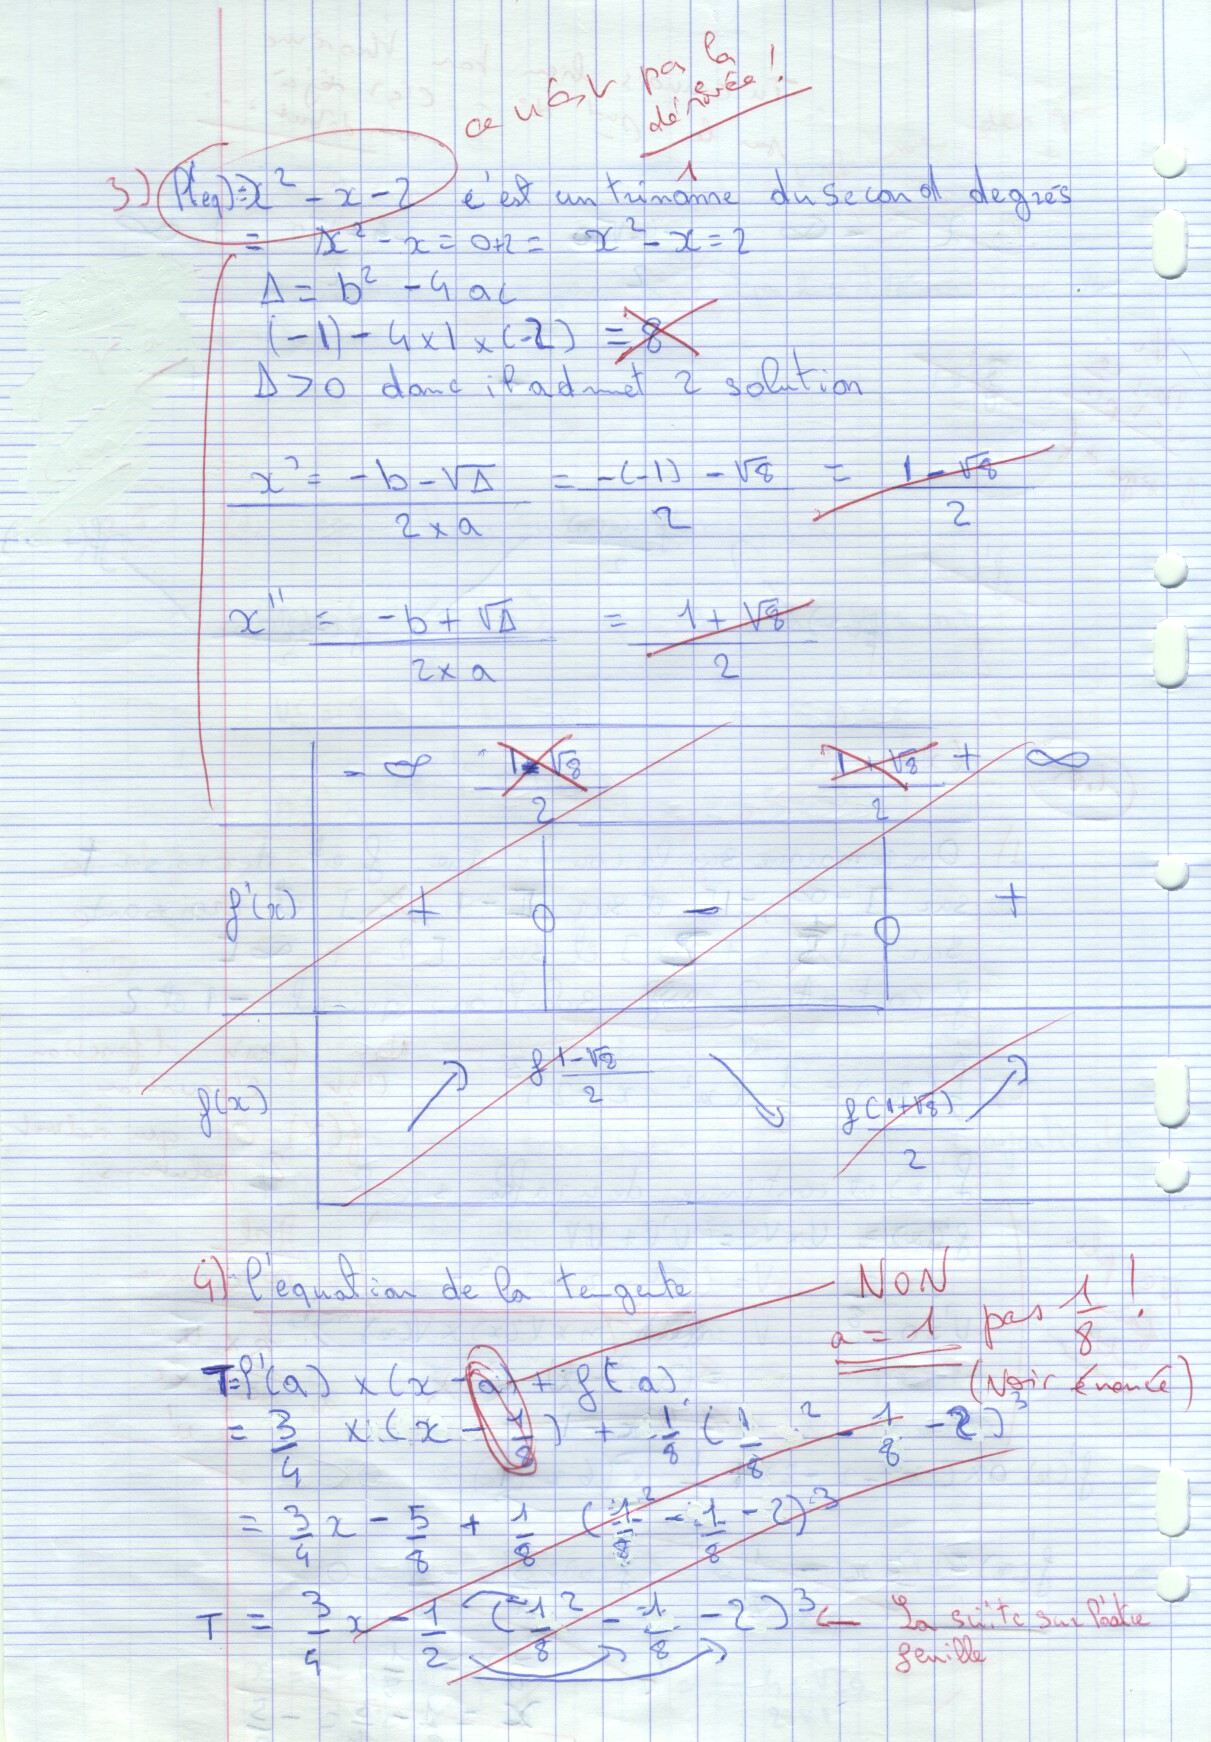 ce n'est pas la
dérivée !
3) P(eq)=x² - x - 2 c'est un trinôme du second degrés
= x² - x = 0+2 = x² - x = 2
Δ = b² - 4 ac
(-1) - 4×1×(-2) = 8
Δ > 0 donc il admet 2 solution
x' = -b - √Δ / 2×a = -(-1) - √8 / 2 = 1 - √8 / 2
x'' = -b + √Δ / 2×a = 1 + √8 / 2
-∞ 1 - √8 / 2 1 + √8 / 2 +∞
f'(x) + 0 - 0 +
f(x) ↗ f 1-√8 / 2 ↘ f(1+√8) / 2 ↗
4) l'equation de la tengente
NON
a = 1 pas 1/8 !
(Voir énoncé)
T = f'(a) × (x - a) + f(a)
= 3/4 × (x - 1/8) + 1/8 (1/8 ² - 1/8 - 2)³
= 3/4 x - 5/8 + 1/8 (1/8 ² - 1/8 - 2)³
T = 3/4 x - 1/2 (1/8 ² - 1/8 - 2)³ ← La suite sur l'autre
feuille